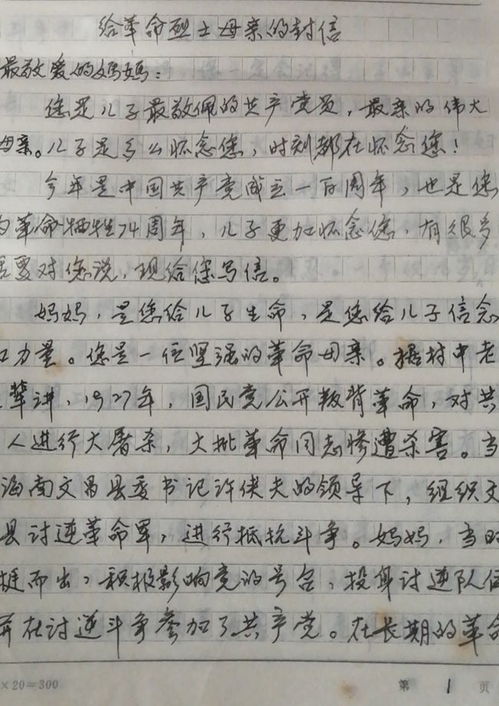 给革命烈士母亲的封信
最敬爱的妈妈：
您是儿子最敬佩的共产党员，最亲的伟大
母亲。儿子是多么怀念您，时刻都在怀念您！
今年是中国共产党成立一百周年，也是您
的革命牺牲74周年，儿子更加怀念您，有很多
要对您说，现给您写信。
妈妈，是您给儿子生命，是您给儿子信念
力量。您是一位坚强的革命母亲。据村中老
辈讲，1927年，国民党公开叛背革命，对共
人进行大屠杀，大批革命同志惨遭杀害。当
海南文昌县委书记许侠夫的领导下，组织文
县讨逆革命军，进行抵抗斗争。妈妈，当时
挺而出，积极影响党的号召，投身讨逆队伍
并在讨逆斗争参加了共产党。在长期的革命
×20=300
第 1 页